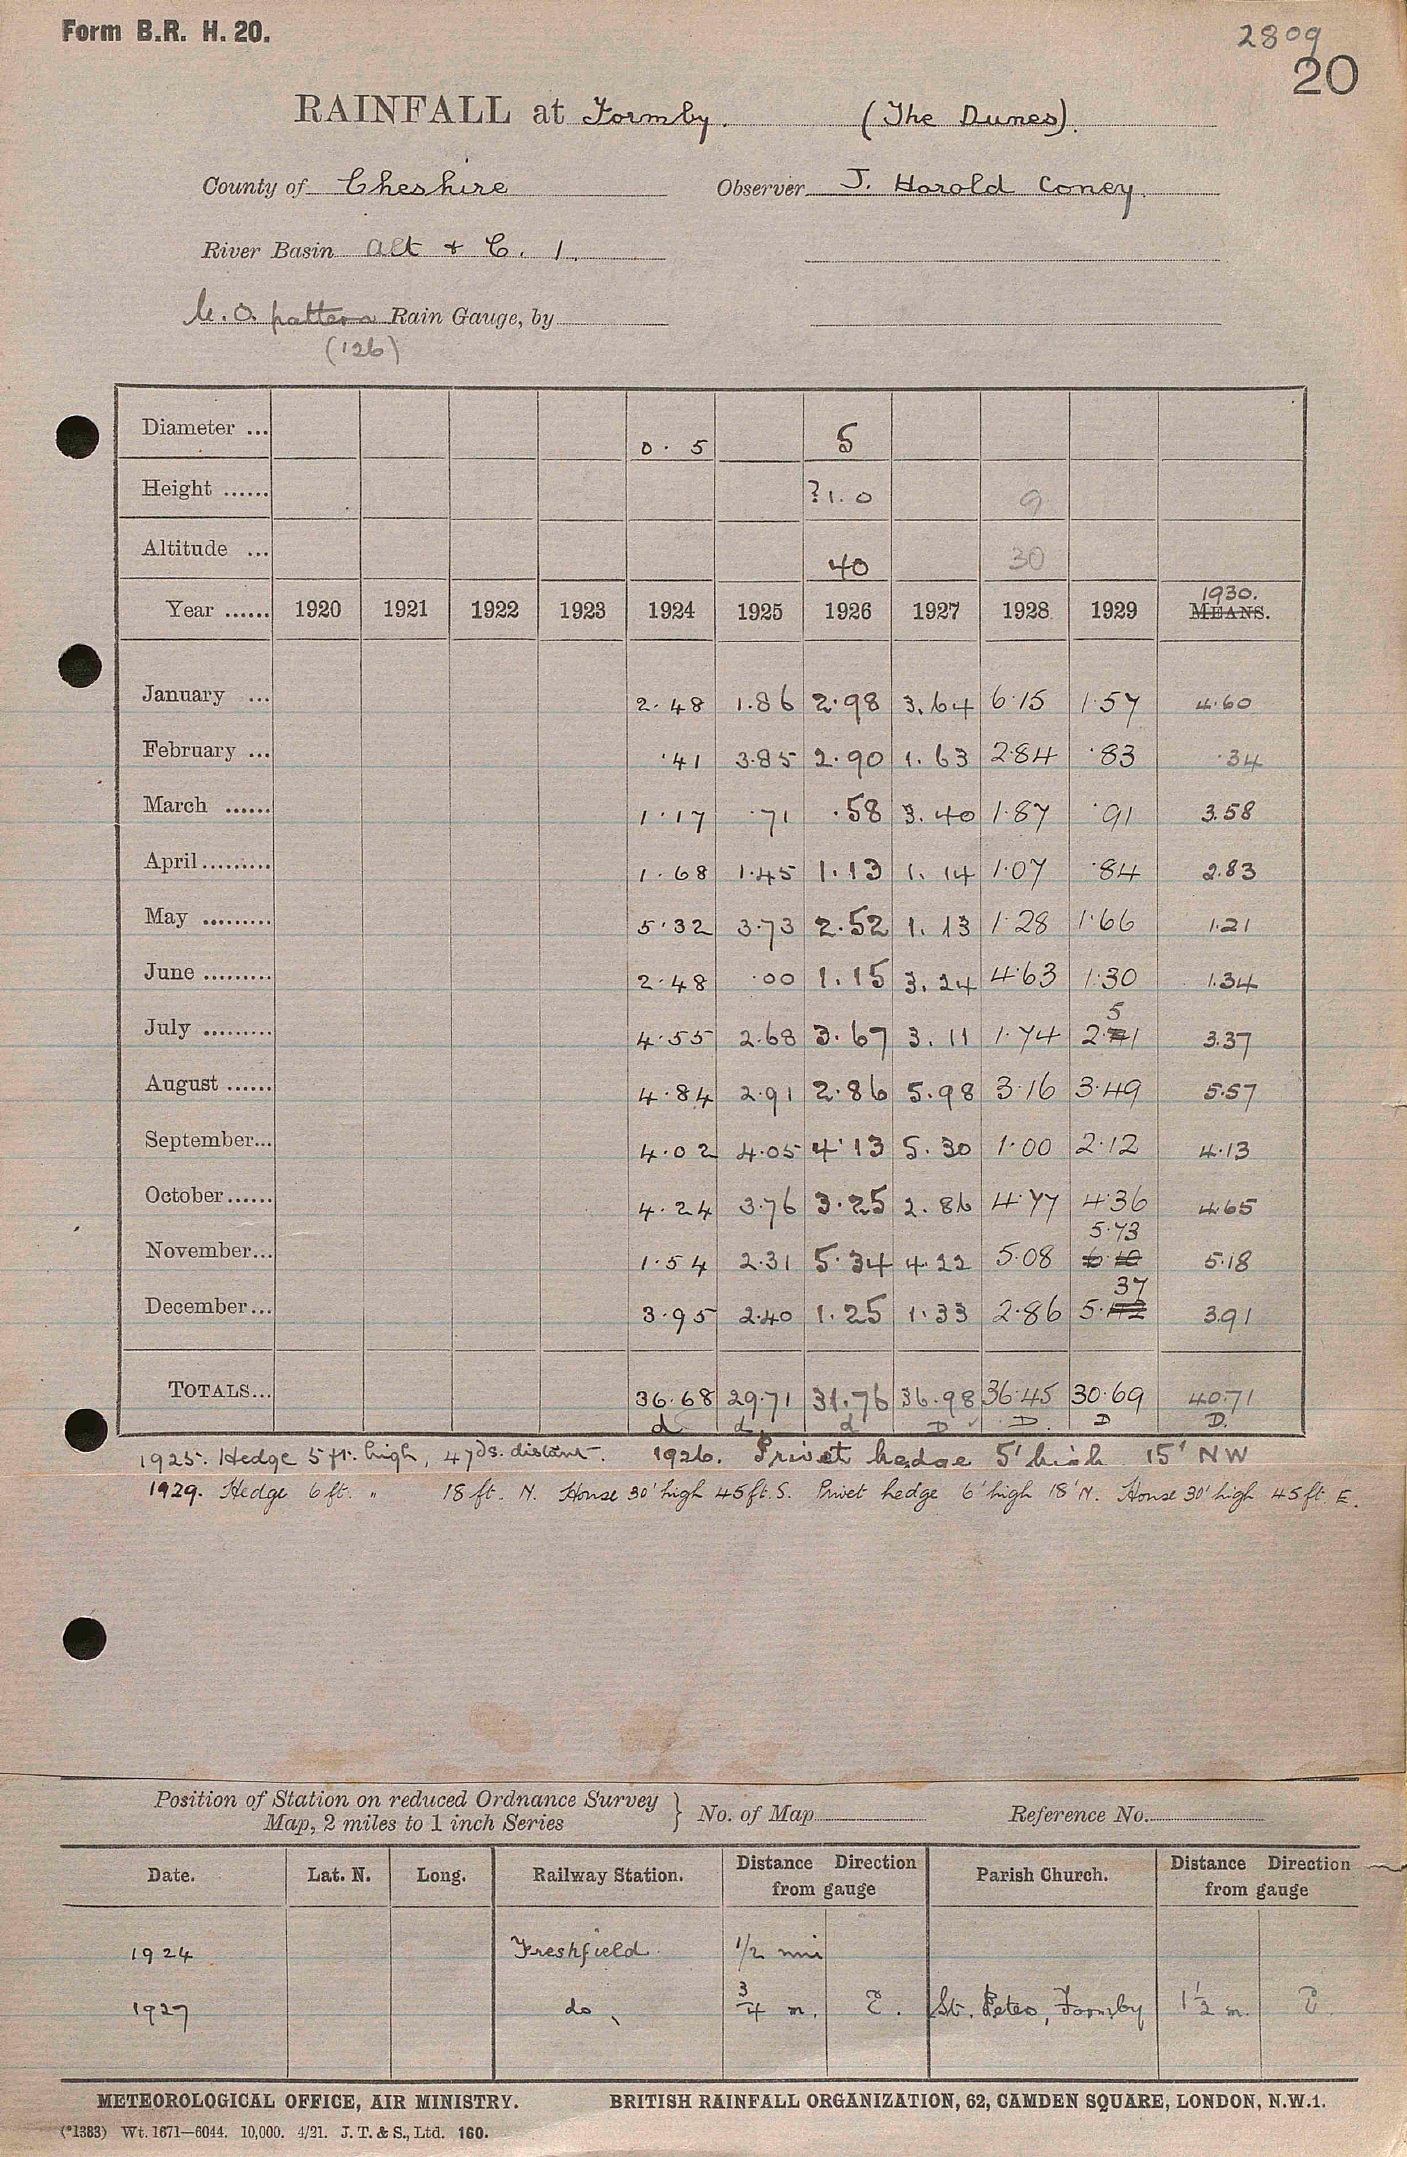 Form B.R. H. 20.
2809
20
RAINFALL at Formby. (The Dunes).
County of Cheshire Observer J. Harold Coney.
River Basin Alt & C. 1.
M.O. pattern Rain Gauge, by
(126)
Diameter ... 0. 5 5
Height ...... ?1.0 9
Altitude ... 40 30
1930.
Year ...... 1920 1921 1922 1923 1924 1925 1926 1927 1928 1929 MEANS.
January ... 2.48 1.86 2.98 3.64 6.15 1.57 4.60
February ... .41 3.85 2.90 1.63 2.84 .83 .34
March ...... 1.17 .71 .58 3.40 1.87 .91 3.58
April......... 1.68 1.45 1.13 1.14 1.07 .84 2.83
May ......... 5.32 3.73 2.52 1.13 1.28 1.66 1.21
June ......... 2.48 .00 1.15 3.24 4.63 1.30 1.34
5
July ......... 4.55 2.68 3.67 3.11 1.74 2.71 3.37
August ...... 4.84 2.91 2.86 5.98 3.16 3.49 5.57
September... 4.02 4.05 4.13 5.30 1.00 2.12 4.13
October...... 4.24 3.76 3.25 2.86 4.77 4.36 4.65
5.73
November... 1.54 2.31 5.34 4.22 5.08 6.10 5.18
37
December... 3.95 2.40 1.25 1.33 2.86 5. 3.91
TOTALS... 36.68 29.71 31.76 36.98 36.45 30.69 40.71
d d. d D ✓ D. D D.
1925. Hedge 5 ft. high, 4 yds. distant. 1926. Privet hedge 5' high 15' NW
1929. Hedge 6 ft. " 18 ft. N. House 30' high 45 ft. S. Privet hedge 6' high 18' N. House 30' high 45 ft E.
Position of Station on reduced Ordnance Survey
Map, 2 miles to 1 inch Series } No. of Map Reference No.
Date. Lat. N. Long. Railway Station. Distance Direction from gauge Parish Church. Distance Direction from gauge
1924 Freshfield. 1/2 mi
1927 do, 3/4 m. E. St. Peter, Formby 1 1/2 m. E.
METEOROLOGICAL OFFICE, AIR MINISTRY. BRITISH RAINFALL ORGANIZATION, 62, CAMDEN SQUARE, LONDON, N.W.1.
(*1383) Wt. 1671—6044. 10,000. 4/21. J. T. & S., Ltd. 160.